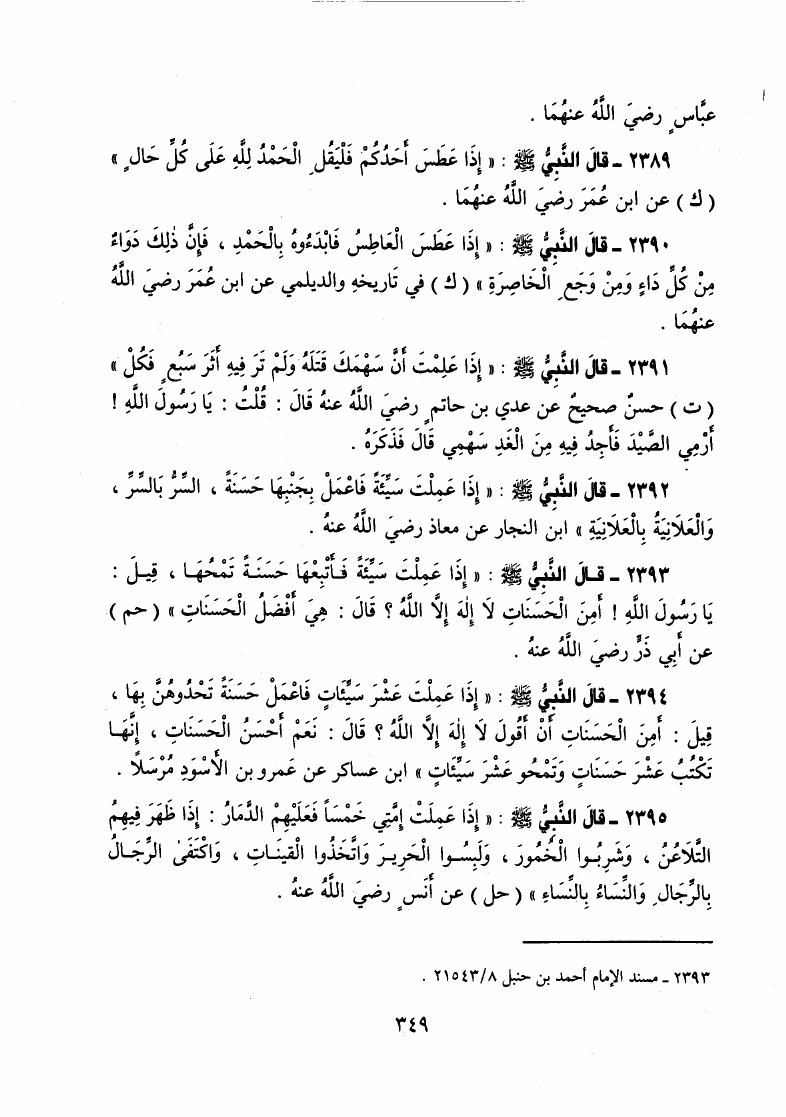 عبَّاسٍ رضيَ اللَّهُ عنهُمَا .
٢٣٨٩ ـ قالَ النَّبِيُّ ﷺ : « إِذَا عَطَسَ أَحَدُكُمْ فَلْيَقُلِ الْحَمْدُ لِلَّهِ عَلَى كُلِّ حَالٍ »
( ك ) عن ابن عُمَرَ رضيَ اللَّهُ عنهُمَا .
٢٣٩٠ ـ قالَ النَّبِيُّ ﷺ : « إِذَا عَطَسَ الْعَاطِسُ فَابْدَءُوهُ بِالْحَمْدِ ، فَإِنَّ ذٰلِكَ دَوَاءٌ
مِنْ كُلِّ دَاءٍ وَمِنْ وَجَعِ الْخَاصِرَةِ » ( ك ) في تَاريخهِ والديلمي عن ابن عُمَرَ رضيَ اللَّهُ
عنهُمَا .
٢٣٩١ ـ قالَ النَّبِيُّ ﷺ : « إِذَا عَلِمْتَ أَنَّ سَهْمَكَ قَتَلَهُ وَلَمْ تَرَ فِيهِ أَثَرَ سَبُعٍ فَكُلْ »
( ت ) حسنٌ صحيحٌ عن عدي بن حاتمٍ رضيَ اللَّهُ عنهُ قَالَ : قُلْتُ : يَا رَسُولَ اللَّهِ !
أَرْمِي الصَّيْدَ فَأَجِدُ فِيهِ مِنَ الْغَدِ سَهْمِي قَالَ فَذَكَرَهُ .
٢٣٩٢ ـ قالَ النَّبِيُّ ﷺ : « إِذَا عَمِلْتَ سَيِّئَةً فَاعْمَلْ بِجَنْبِهَا حَسَنَةً ، السِّرُّ بَالسِّرِّ ،
وَالْعَلَانِيَةُ بِالْعَلَانِيَةِ » ابن النجار عن معاذ رضيَ اللَّهُ عنهُ .
٢٣٩٣ ـ قـالَ النَّبِيُّ ﷺ : « إِذَا عَمِلْتَ سَيِّئَةً فَـأَتْبِعْهَا حَسَنَـةً تَمْحُهَـا ، قِيـلَ :
يَا رَسُولَ اللَّهِ ! أَمِنَ الْحَسَنَاتِ لَا إِلٰهَ إِلَّا اللَّهُ ؟ قَالَ : هِيَ أَفْضَلُ الْحَسَنَاتِ » ( حم )
عن أَبِي ذَرٍّ رضيَ اللَّهُ عنهُ .
٢٣٩٤ ـ قالَ النَّبِيُّ ﷺ : « إِذَا عَمِلْتَ عَشْرَ سَيِّئَاتٍ فَاعْمَلْ حَسَنَةً تَحْدُوهُنَّ بِهَا ،
قِيلَ : أَمِنَ الْحَسَنَاتِ أَنْ أَقُولَ لَا إِلٰهَ إِلَّا اللَّهُ ؟ قَالَ : نَعَمْ أَحْسَنُ الْحَسَنَاتِ ، إِنَّهَا
تَكْتُبُ عَشْرَ حَسَنَاتٍ وَتَمْحُو عَشْرَ سَيِّئَاتٍ » ابن عساكر عن عَمرو بن الأَسْوَدِ مُرْسَلاً .
٢٣٩٥ ـ قالَ النَّبِيُّ ﷺ : « إِذَا عَمِلَتْ إِمَّتِي خَمْسَاً فَعَلَيْهِمْ الدَّمَارُ : إِذَا ظَهَرَ فِيهِمُ
التَّلَاعُنُ ، وَشَرِبُـوا الْخُمُورَ ، وَلَبِسُـوا الْحَرِيـرَ وَاتَّخَذُوا الْقَيْنَـاتِ ، وَاكْتَفَىٰ الرِّجَـالُ
بِالرِّجَالِ وَالنِّسَاءُ بِالنِّسَاءِ » ( حل ) عن أَنَسٍ رضيَ اللَّهُ عنهُ .
٢٣٩٣ ـ مسند الإمام أحمد بن حنبل ٢١٥٤٣/٨ .
٣٤٩